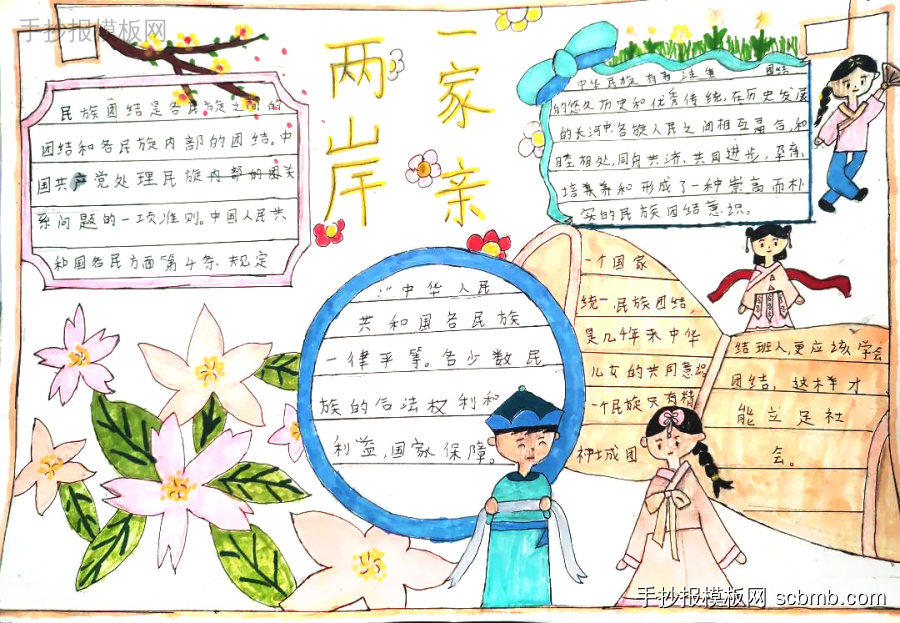 手抄报模板网
两岸
一家亲
民族团结是各民族之间的
团结和各民族内部的团结。中
国共产党处理民族内部的团关
系问题的一项准则。中国人民共
和国各民方面第4条规定
中华民族有着 团结
的悠久历史和优秀传统,在历史发展
的长河中各族人民之间相互融合,和
睦相处,同舟共济、共同进步,孕育、
培养和形成了一种崇高而朴
实的民族团结意识。
"中华人民
共和国各民族
一律平等。各少数民
族的合法权利和
利益,国家保障。
一个国家
统一,民族团结,
是几千年来中华
儿女的共同意识
一个民族只有精
神上成团
结班人,更应该学会
团结,这样才
能立足社
会。
手抄报模板网 scbmb.com